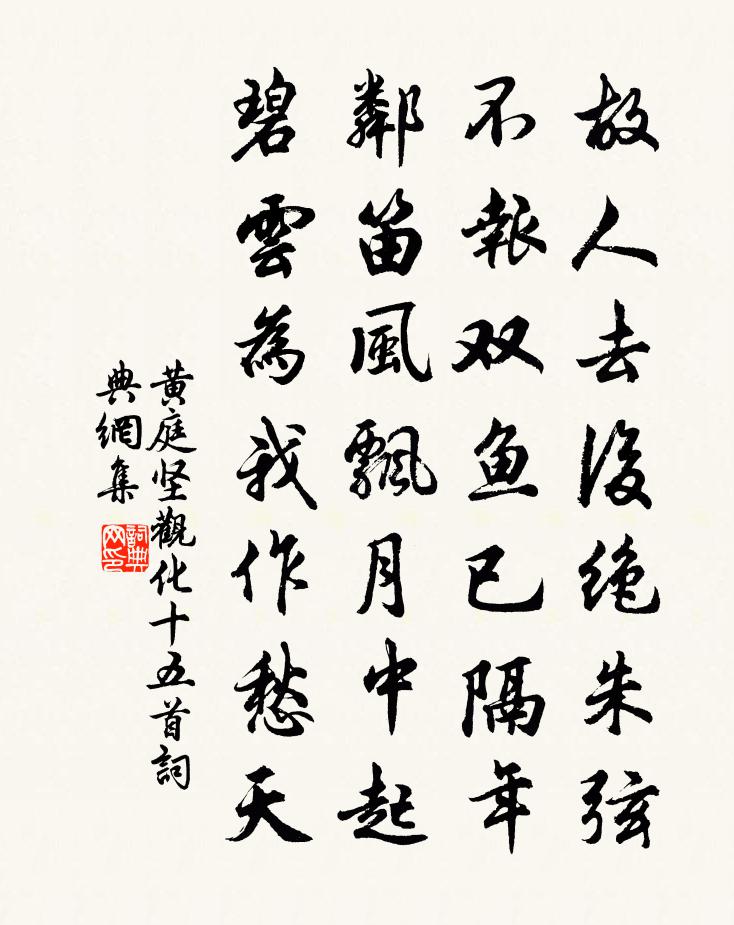 故人去後绝朱弦
不報双鱼已隔年
鄰笛風飄月中起
碧雲為我作愁天
黄庭坚觀化十五首詞
典網集
詞典网印